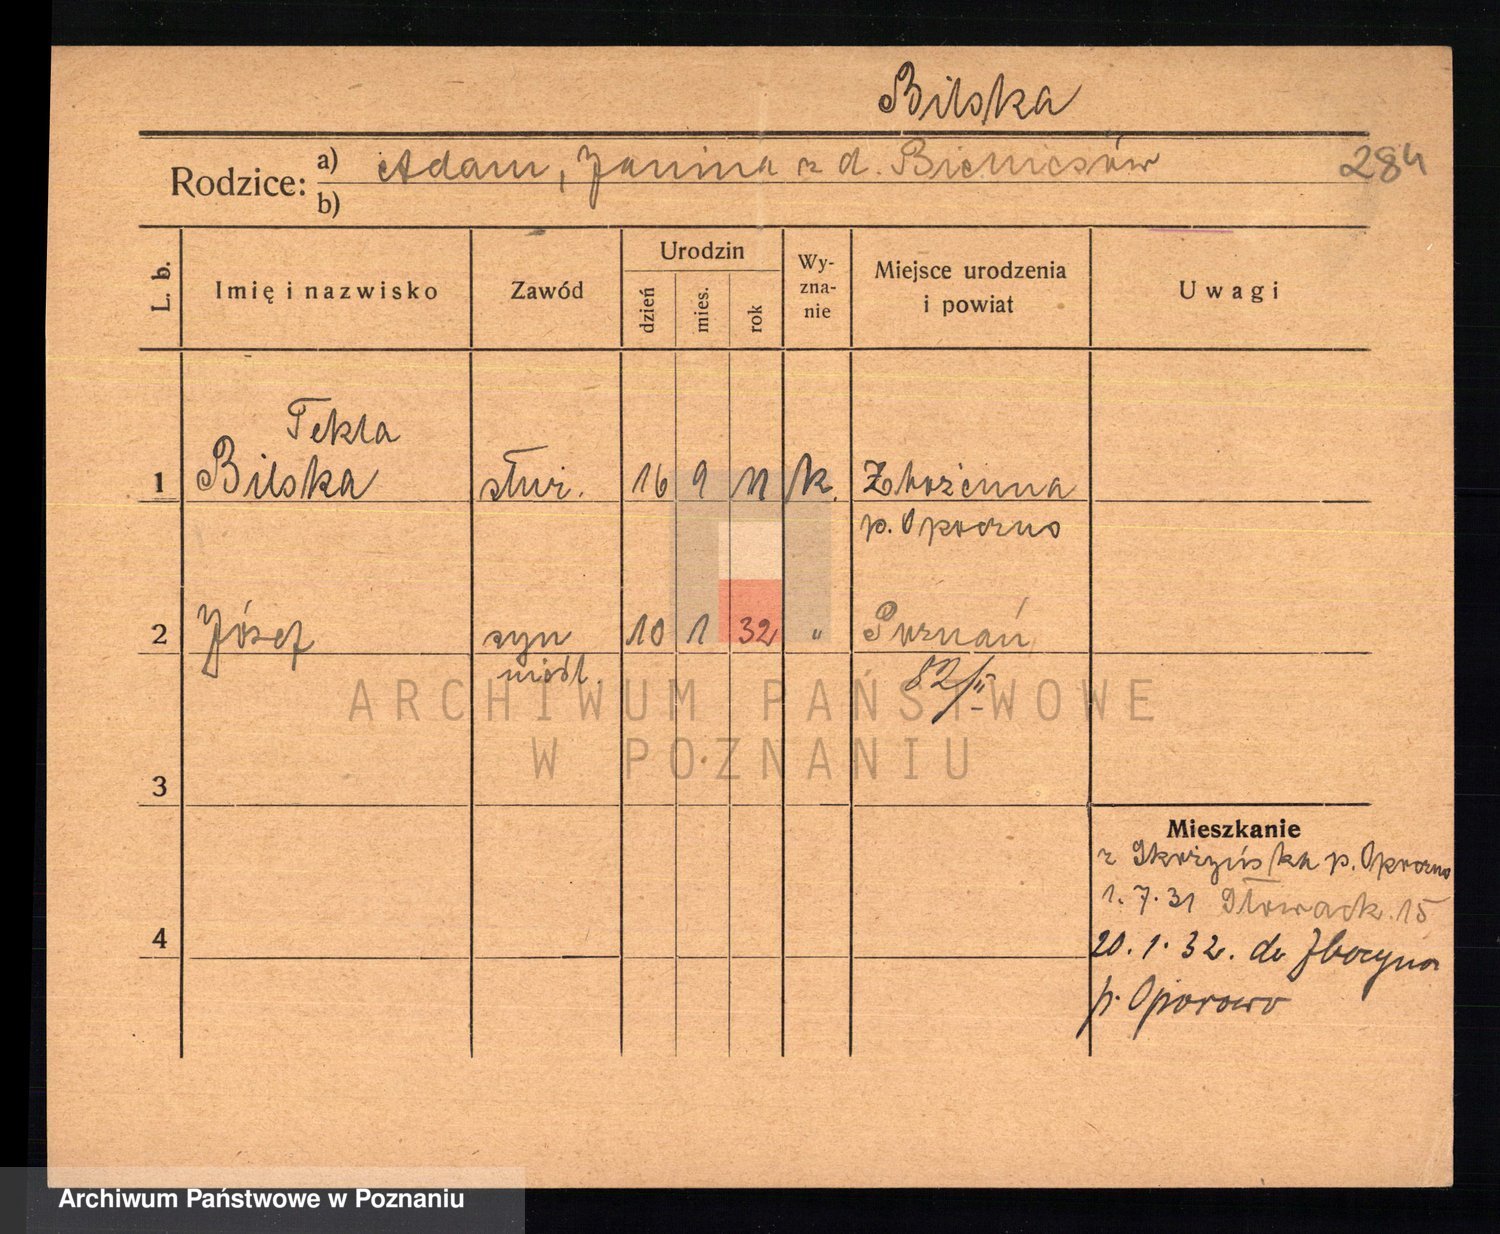 Bilska
Rodzice: a) Adam, Janina z d.
b)
284
L. b.
Imię i nazwisko
Zawód
Urodzin
dzień
mies.
rok
Wy-
zna-
nie
Miejsce urodzenia
i powiat
Uwagi
Tekla
1 Bilska służ. 16 9 11 k.
p. Opoczno
2 Józef syn 10 1 32 " Poznań
nieśl. 82/II
ARCHIWUM PAŃSTWOWE
W POZNANIU
3
Mieszkanie
z p. Opoczno
1.7.31 Słowack. 15
4
20.1.32. do
p. Oporowo
Archiwum Państwowe w Poznaniu